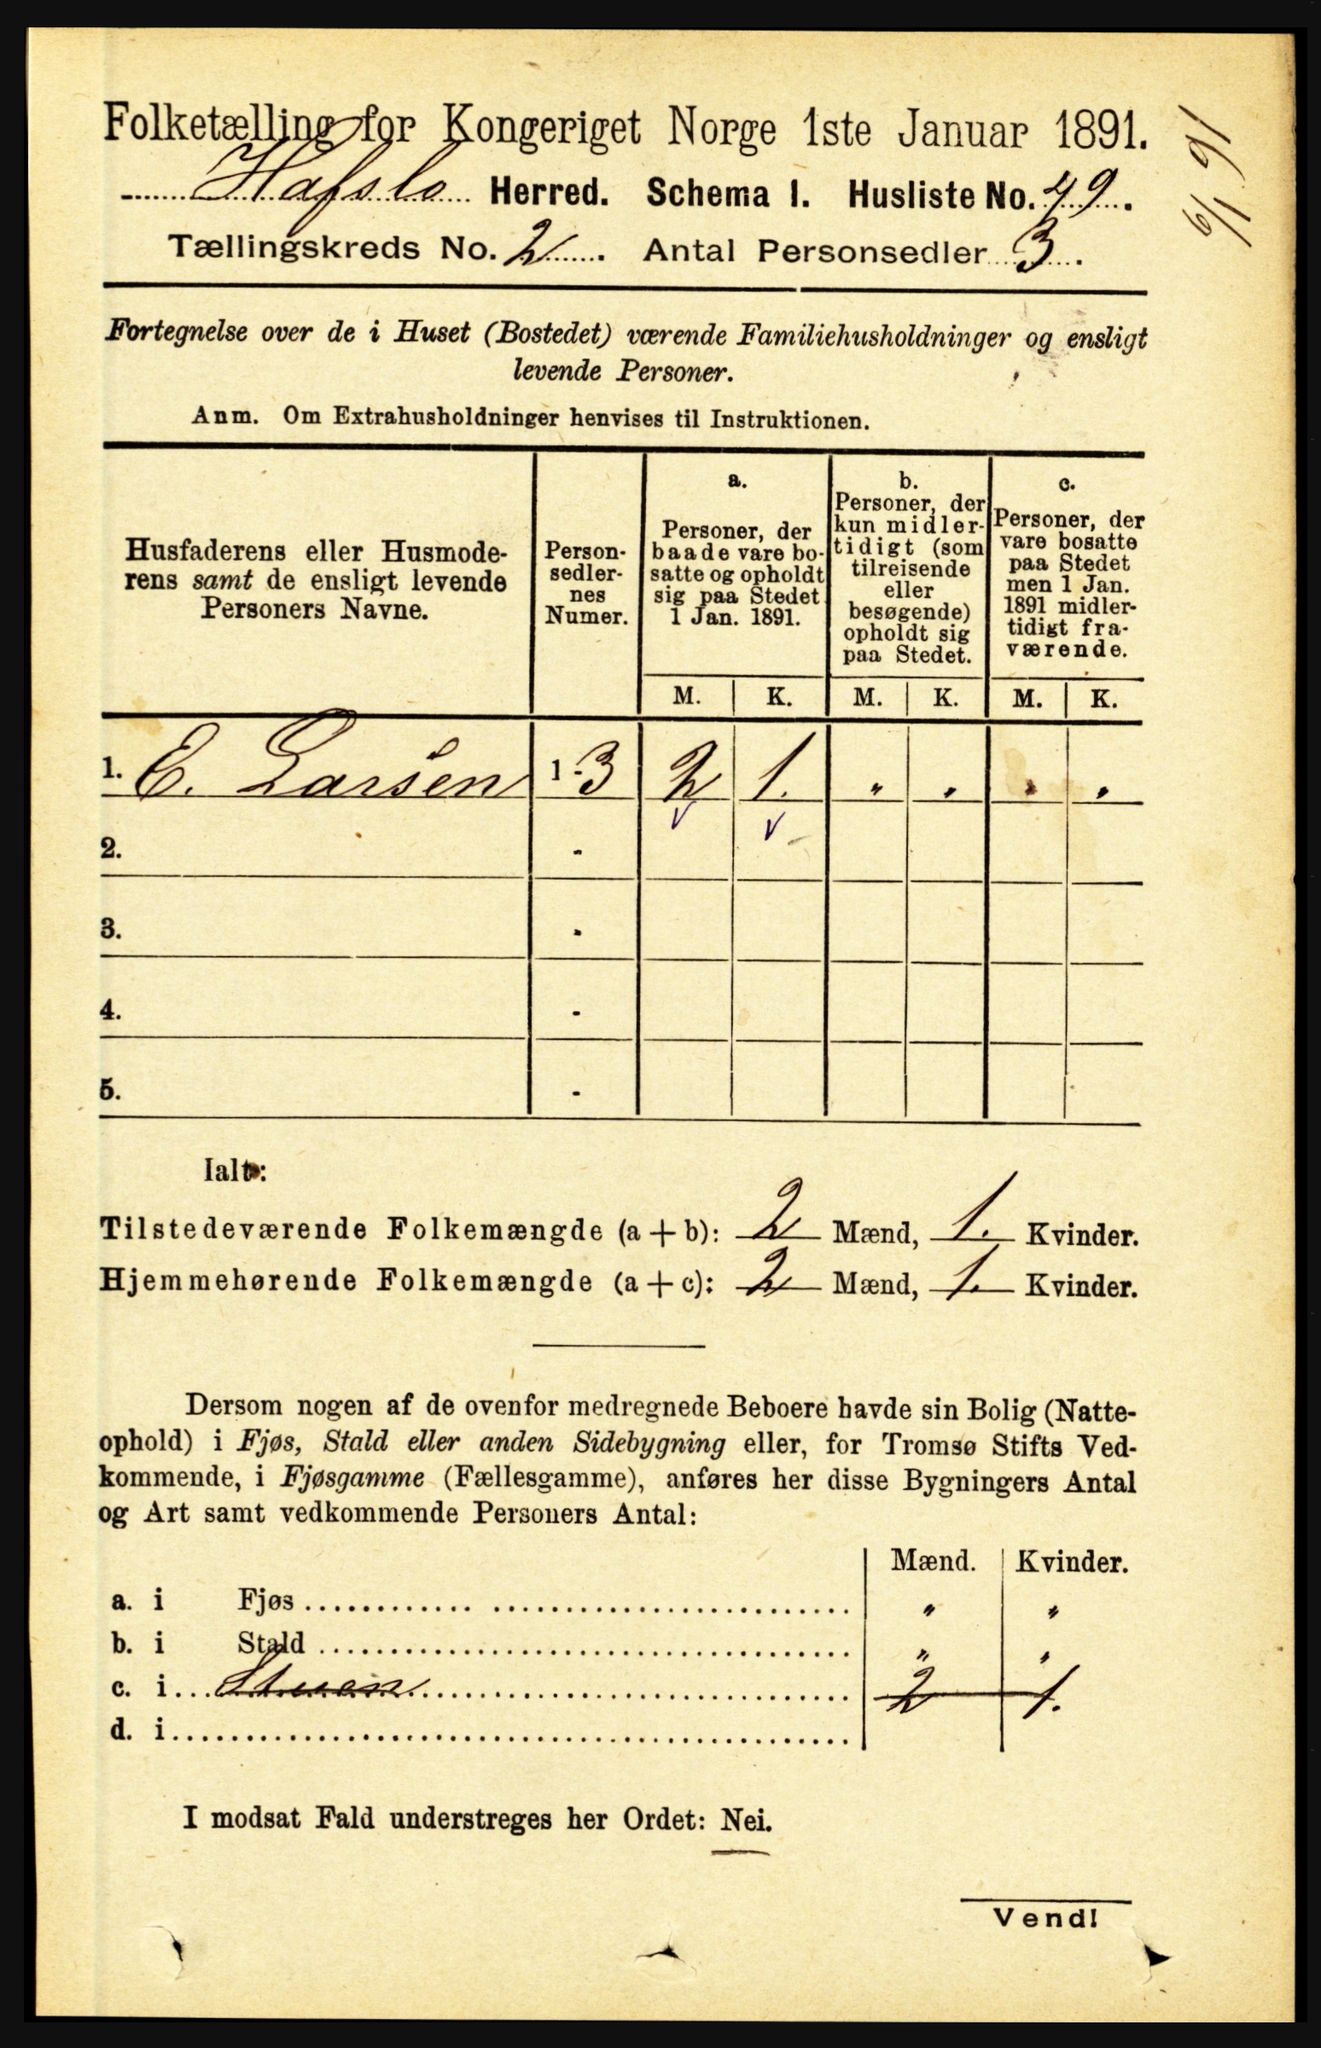 Folketælling for Kongeriget Norge 1ste Januar 1891.
Hafslo Herred. Schema I. Husliste No. 49.
6/1 91
Tællingskreds No. 2. Antal Personsedler 3.
Fortegnelse over de i Huset (Bostedet) værende Familiehusholdninger og ensligt
levende Personer.
Anm. Om Extrahusholdninger henvises til Instruktionen.
Husfaderens eller Husmode-
rens samt de ensligt levende
Personers Navne.
Person-
sedler-
nes
Numer.
a.
Personer, der
baade vare bo-
satte og opholdt
sig paa Stedet
1 Jan. 1891.
b.
Personer, der
kun midler-
tidigt (som
tilreisende
eller
besøgende)
opholdt sig
paa Stedet.
c.
Personer, der
vare bosatte
paa Stedet
men 1 Jan.
1891 midler-
tidigt fra-
værende.
M. K. M. K. M. K.
1. E. Larsen 1-3 2 1. " " " "
2. -
3. -
4. -
5. -
Ialt:
Tilstedeværende Folkemængde (a + b): 2 Mænd, 1. Kvinder.
Hjemmehørende Folkemængde (a + c): 2 Mænd, 1. Kvinder.
Dersom nogen af de ovenfor medregnede Beboere havde sin Bolig (Natte-
ophold) i Fjøs, Stald eller anden Sidebygning eller, for Tromsø Stifts Ved-
kommende, i Fjøsgamme (Fællesgamme), anføres her disse Bygningers Antal
og Art samt vedkommende Personers Antal:
Mænd. Kvinder.
a. i Fjøs " "
b. i Stald " "
c. i 2 1.
d. i
I modsat Fald understreges her Ordet: Nei.
Vend!